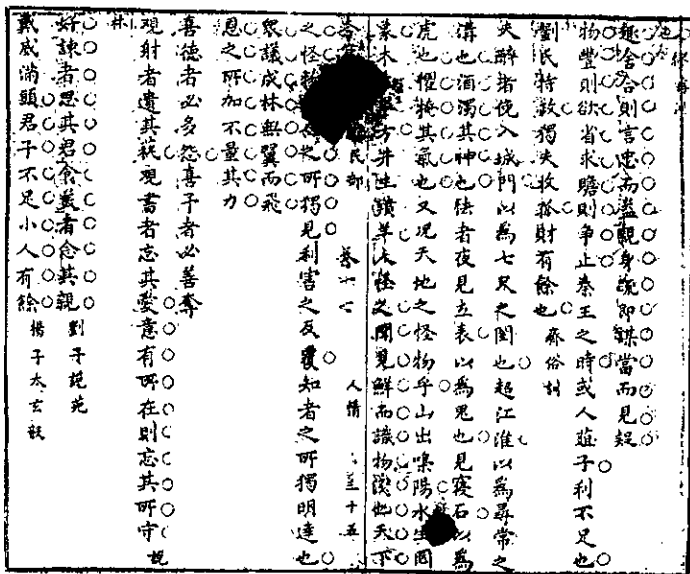 也
趣舍合則言忠而益親身疏即謀當而見疑
物豐則欲省求贍則爭止秦王之時或人葅子利不足也
劉氏持政獨夫收孤財有餘也 齊俗訓
夫醉者俛入城門以為七尺之閨也超江淮以為尋常之
溝也酒濁其神也怯者夜見立表以為鬼也見寢石以為
虎也懼揜其氣也又況天地之怪物乎山出嘄陽水生罔
象木 井生墳羊人怪之聞見鮮而識物淺也天下
之怪 之所獨見利害之反覆知者之所獨明達也
民部 卷十七 人情 十五
眾議成林無翼而飛
恩之所加不量其力
喜德者必多怨喜予者必善奪
觀射者遺其藝觀書者忘其愛意有所在則忘其所守 說
林
好諫者思其君食美者念其親 劉子說苑
戴威滿頭君子不足小人有餘 揚子太玄